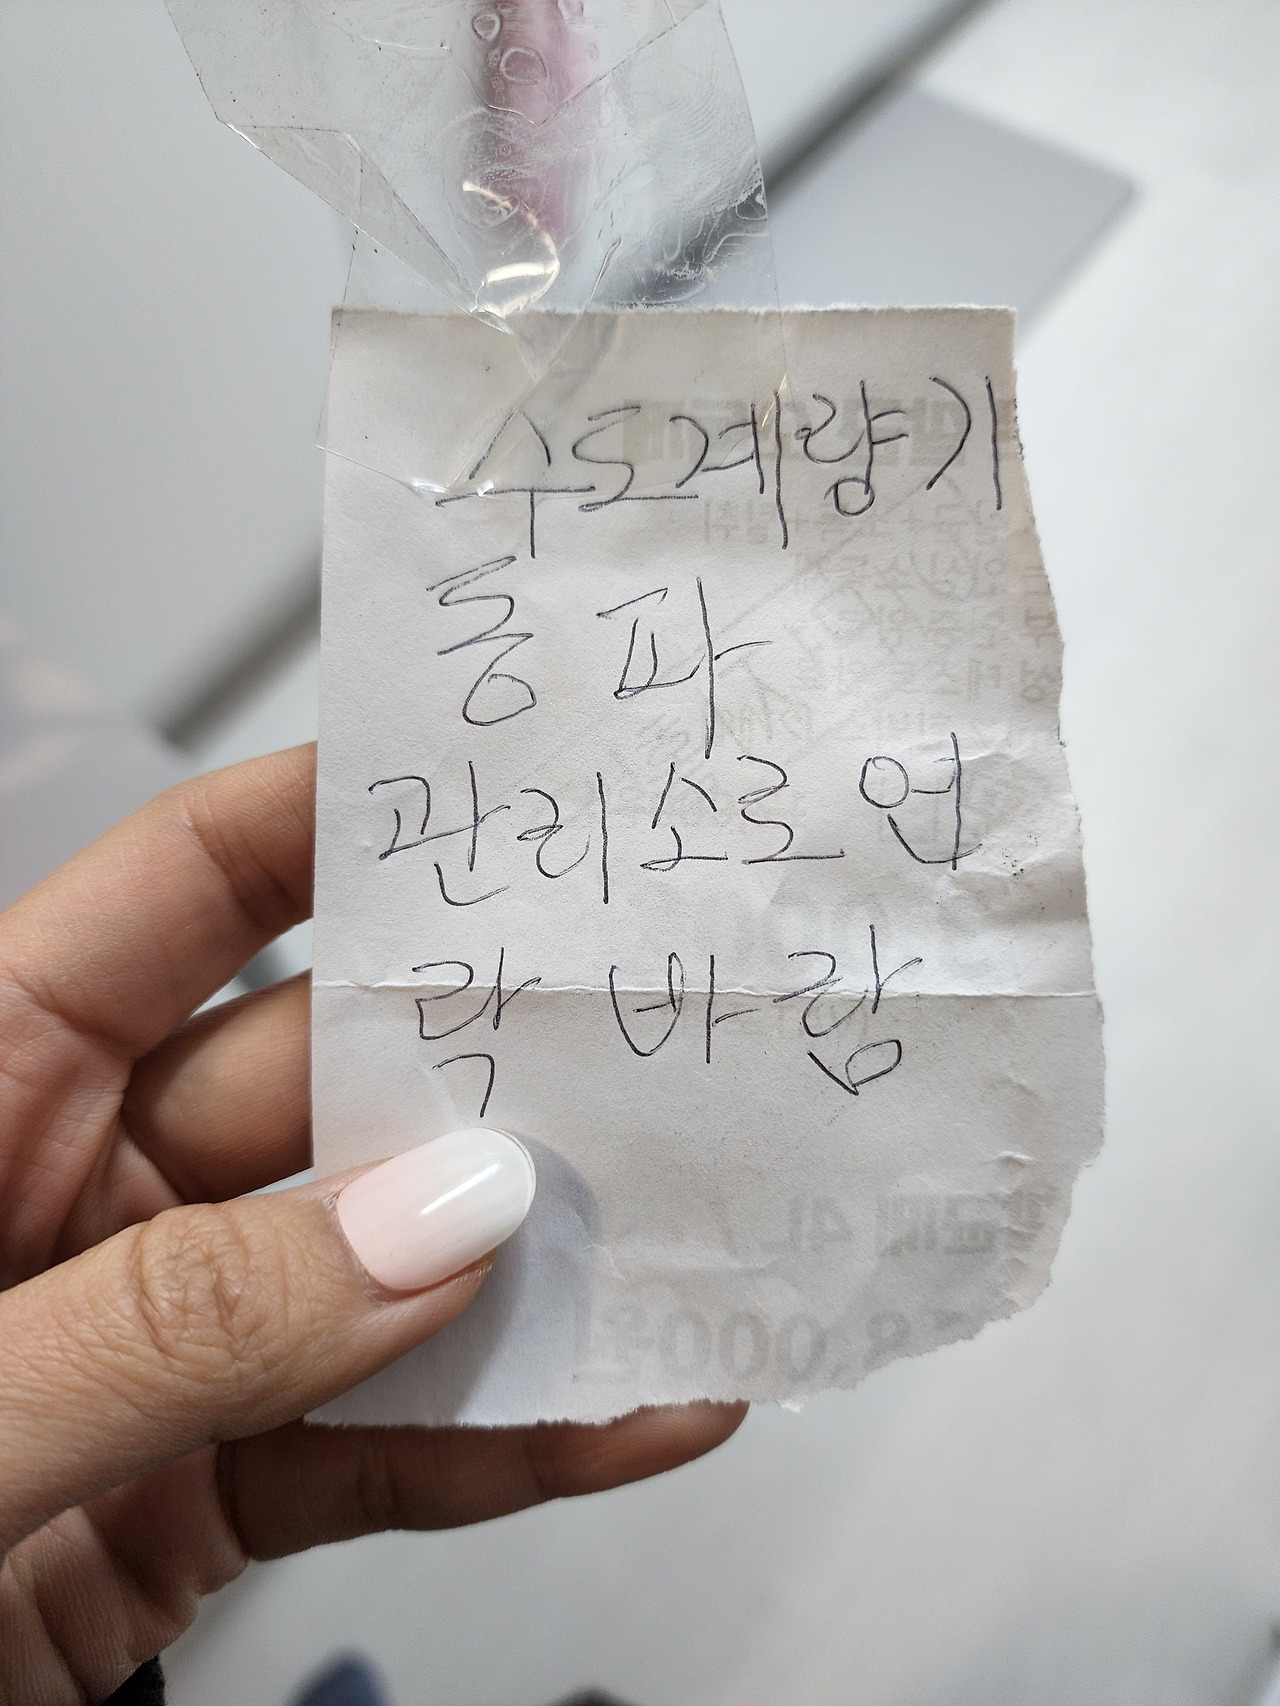 수도계량기
동 파
관리소로 연
락 바람